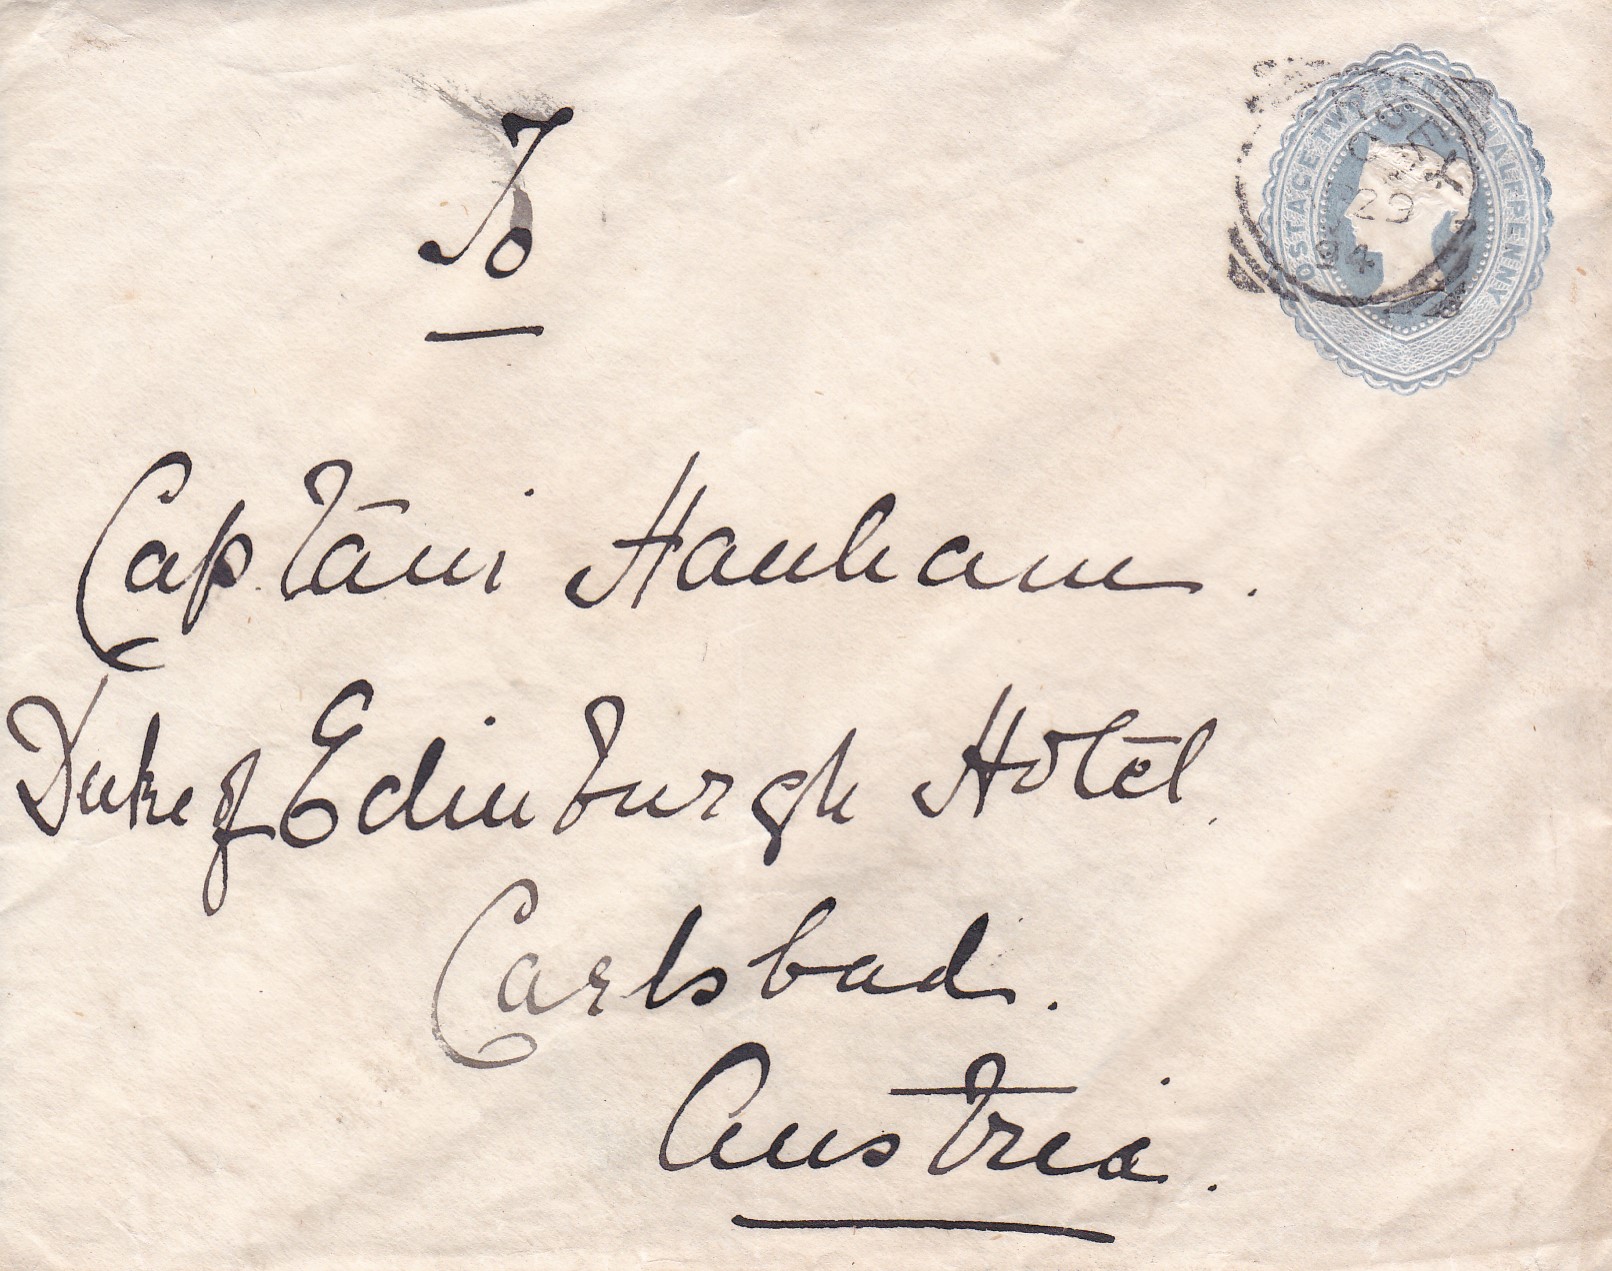 POSTAGE TWO PENCE HALFPENNY
29
94
To
Captain Hanham.
Duke of Edinburgh Hotel.
Carlsbad.
Austria.